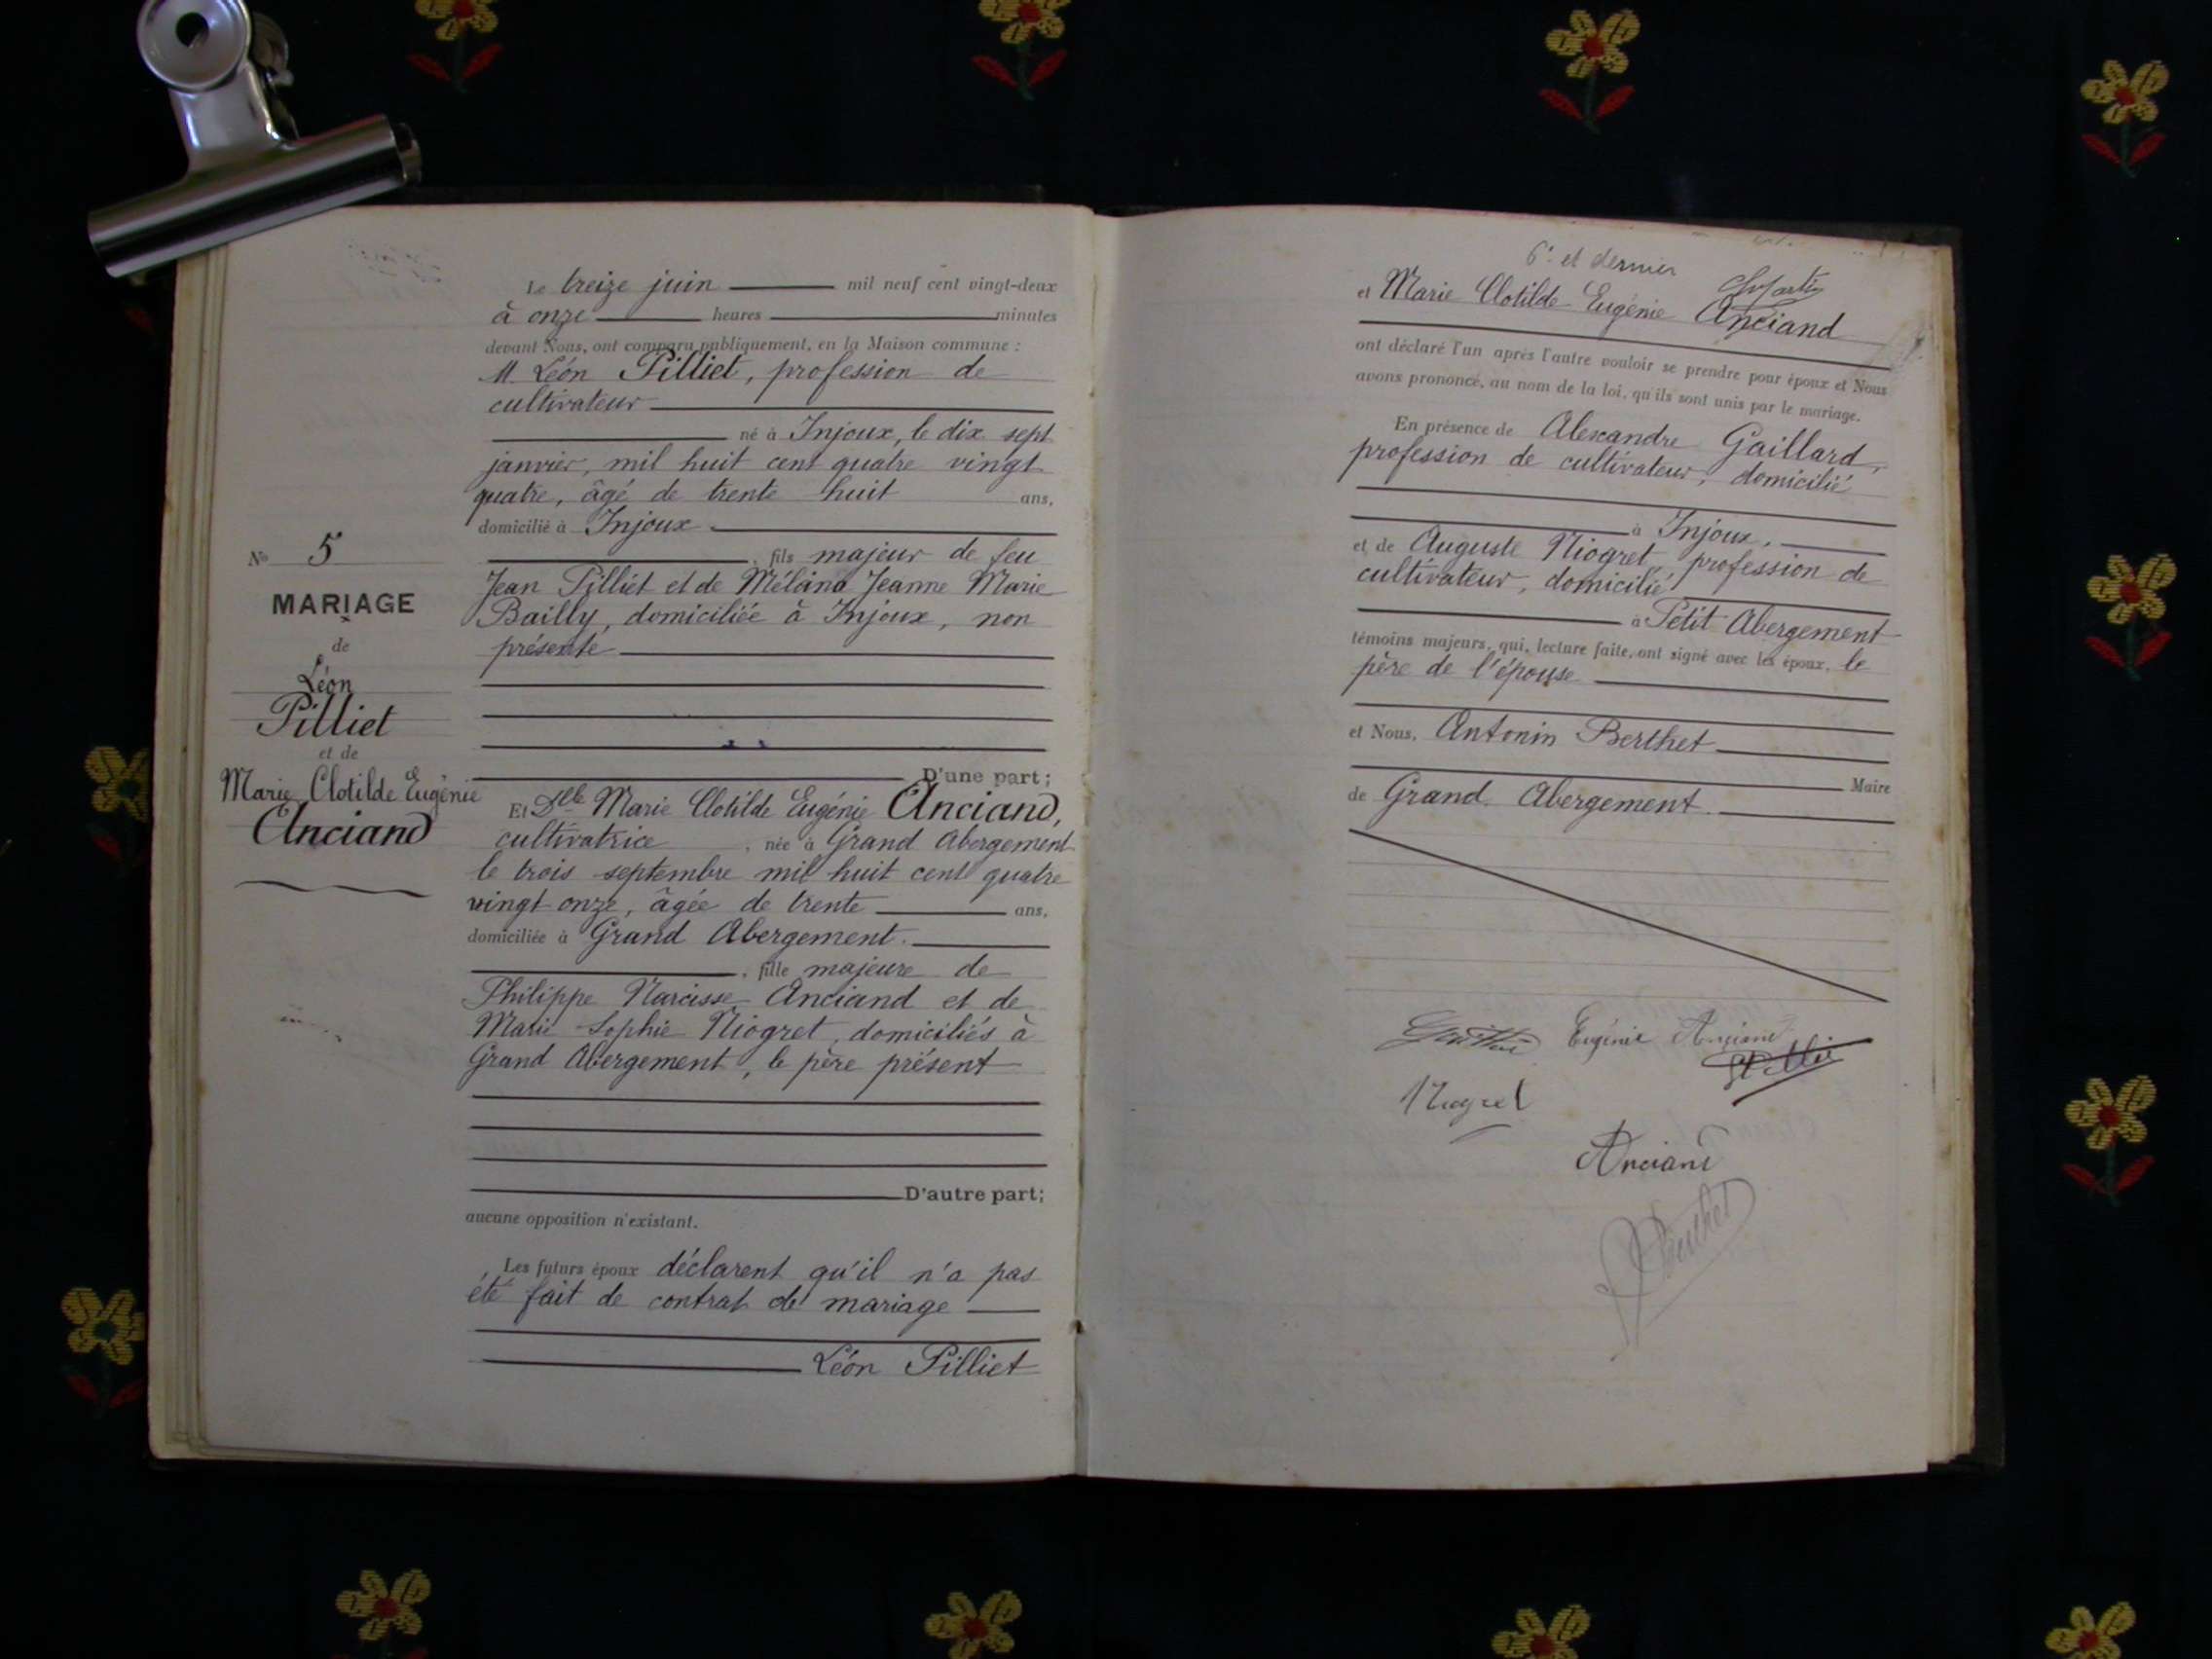 Le treize juin mil neuf cent vingt-deux
à onze heures minutes
devant Nous, ont comparu publiquement, en la Maison commune :
M. Léon Pilliet, profession de
cultivateur
né à Injoux, le dix sept
janvier, mil huit cent quatre vingt
quatre, âgé de trente huit ans,
domicilié à Injoux
, fils majeur de feu
Jean Pilliet et de Mélina Jeanne Marie
Bailly, domiciliée à Injoux, non
présente
D'une part;
Et Delle Marie Clotilde Eugénie Anciand,
cultivatrice, née à Grand Abergement
le trois septembre mil huit cent quatre
vingt onze, âgée de trente ans,
domiciliée à Grand Abergement.
, fille majeure de
Philippe Narcisse Anciand et de
Marie Sophie Niogret, domiciliés à
Grand Abergement, le père présent
D'autre part;
aucune opposition n'existant.
Les futurs époux déclarent qu'il n'a pas
été fait de contrat de mariage
Léon Pilliet
No 5
MARIAGE
de
Léon
Pilliet
et de
Marie Clotilde Eugénie
Anciand
6e et dernier
et Marie Clotilde Eugénie Anciand
ont déclaré l'un après l'autre vouloir se prendre pour époux et Nous
avons prononcé, au nom de la loi, qu'ils sont unis par le mariage.
En présence de Alexandre Gaillard,
profession de cultivateur, domicilié
à Injoux,
et de Auguste Niogret, profession de
cultivateur, domicilié
à Petit Abergement
témoins majeurs, qui, lecture faite, ont signé avec les époux, le
père de l'épouse
et Nous, Antonin Berthet
Maire
de Grand Abergement.
Eugénie Anciand
Niogret
Anciand
Berthet